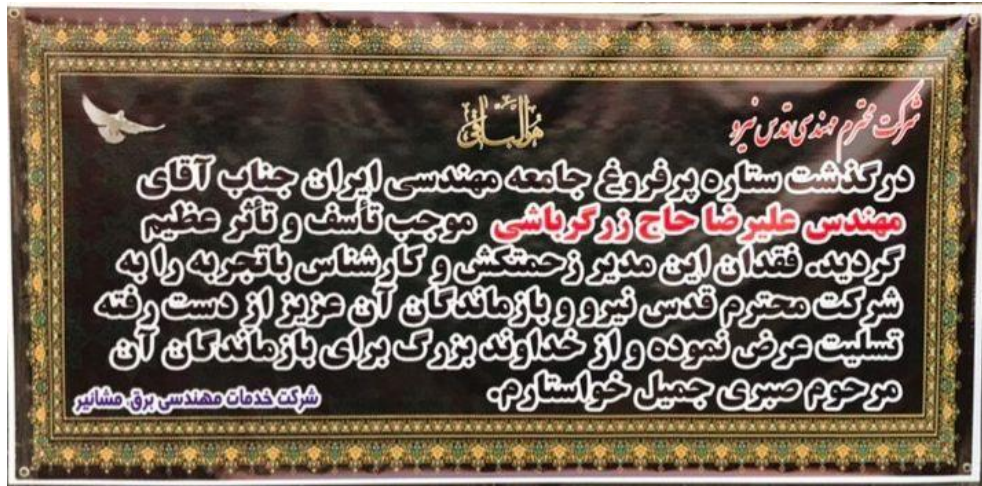 هوالباقی
شرکت محترم مهندسی قدس نیرو
درگذشت ستاره پرفروغ جامعه مهندسی ایران جناب آقای
مهندس علیرضا حاج زرگرباشی موجب تأسف و تأثر عظیم
گردید. فقدان این مدیر زحمتکش و کارشناس باتجربه را به
شرکت محترم قدس نیرو و بازماندگان آن عزیز از دست رفته
تسلیت عرض نموده و از خداوند بزرگ برای بازماندگان آن
مرحوم صبری جمیل خواستارم.
شرکت خدمات مهندسی برق مشانیر